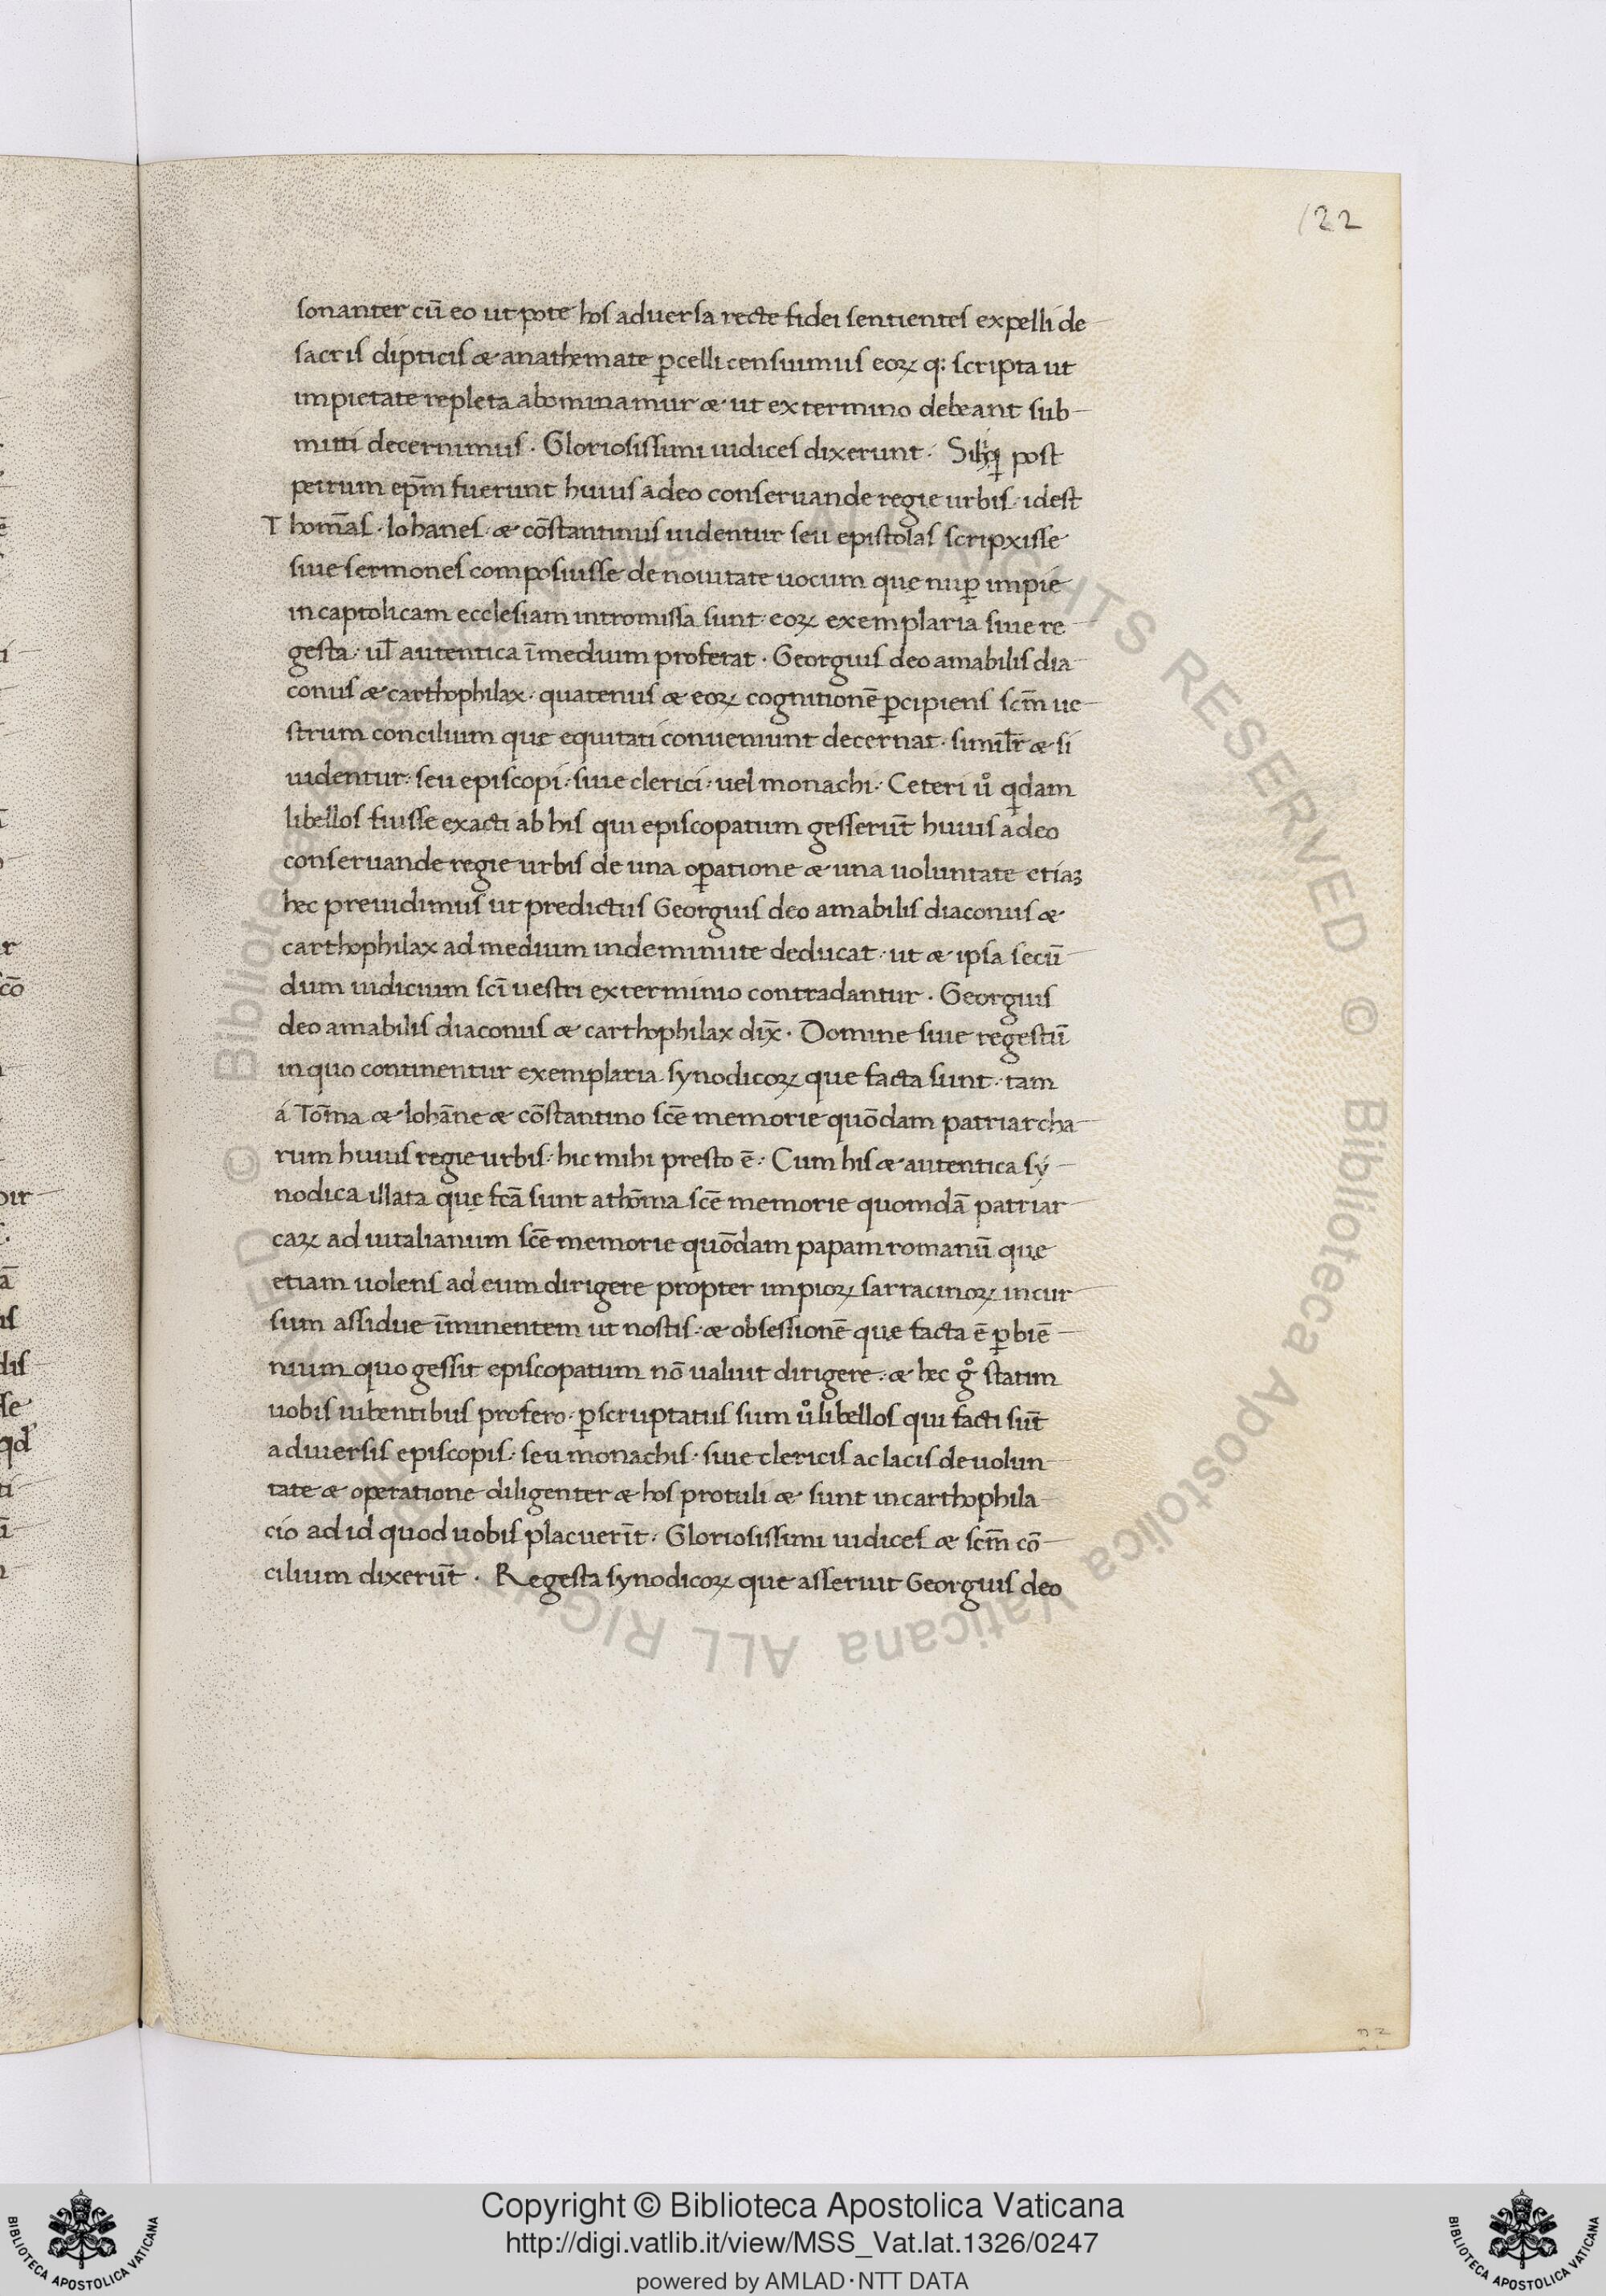 122
sonanter cū eo ut pote hos aduersa recte fidei sentientes expelli de
sacris dipticis æ anathemate ꝑcelli censuimus eoꝝ q: scripta ut
impietate repleta abominamur æ ut extermino debeant sub
mitti decernimus. Gloriosissimi iudices dixerunt. post
petrum ep̄m fuerunt huius adeo conseruande regie urbis. idest
Thom̄as. Iohanes. æ cōstantinus uidentur seu epistolas scripxisse
siue sermones composuisse de nouitate uocum que nuꝑ impie
in captolicam ecclesiam intromissa sunt. eoꝝ exemplaria siue re
gesta. ul̄ autentica ī medium proferat. Georgius deo amabilis dia
conus æ carthophilax. quatenus æ eoꝝ cognitionē ꝑcipiens sc̄m ue
strum concilium que equitati conueniunt decernat. simil̄r æ si
uidentur. seu episcopi. siue clerici. uel monachi. Ceteri uͦ qͥdam
libellos fuisse exacti ab his qui episcopatum gesserūt huius adeo
conseruande regie urbis de una oꝑatione æ una uoluntate etiaꝫ
hec preuidimus ut predictus Georgius deo amabilis diaconus æ
carthophilax ad medium indeminute deducat. ut æ ipsa secū
dum iudicium sc̄i uestri exterminio contradantur. Georgius
deo amabilis diaconus æ carthophilax dix̄. Domine siue regestū
in quo continentur exemplaria synodicoꝝ que facta sunt. tam
á Tom̄a æ Iohāne æ cōstantino sc̄e memorie quōdam patriarcha
rum huius regie urbis. hic mihi presto ē. Cum his æ autentica sy
nodica illata que fc̄a sunt a thōma sc̄e memorie quomdā patriar
caꝝ ad uitalianum sc̄e memorie quōdam papam romanū que
etiam uolens ad eum dirigere propter impioꝝ sarracinoꝝ incur
sum assidue īminentem ut nostis. æ obsessionē que facta ē ꝑ biē
nium quo gessit episcopatum nō ualuit dirigere. æ hec gͦ statim
uobis iubentibus profero. ꝑscruptatus sum uͦ libellos qui facti sūt
a diuersis episcopis. seu monachis. siue clericis ac lacis de uolun
tate æ operatione diligenter æ hos protuli æ sunt in carthophila
cio ad id quod uobis placuerīt. Gloriosissimi iudices æ sc̄m cō
cilium dixerūt. Regesta synodicoꝝ que asseruit Georgius deo
© Biblioteca Apostolica Vaticana ALL RIGHTS RESERVED © Biblioteca Apostolica Vaticana ALL RIGHTS RESERVED
Copyright © Biblioteca Apostolica Vaticana
http://digi.vatlib.it/view/MSS_Vat.lat.1326/0247
powered by AMLAD·NTT DATA
BIBLIOTECA APOSTOLICA VATICANA
BIBLIOTECA APOSTOLICA VATICANA